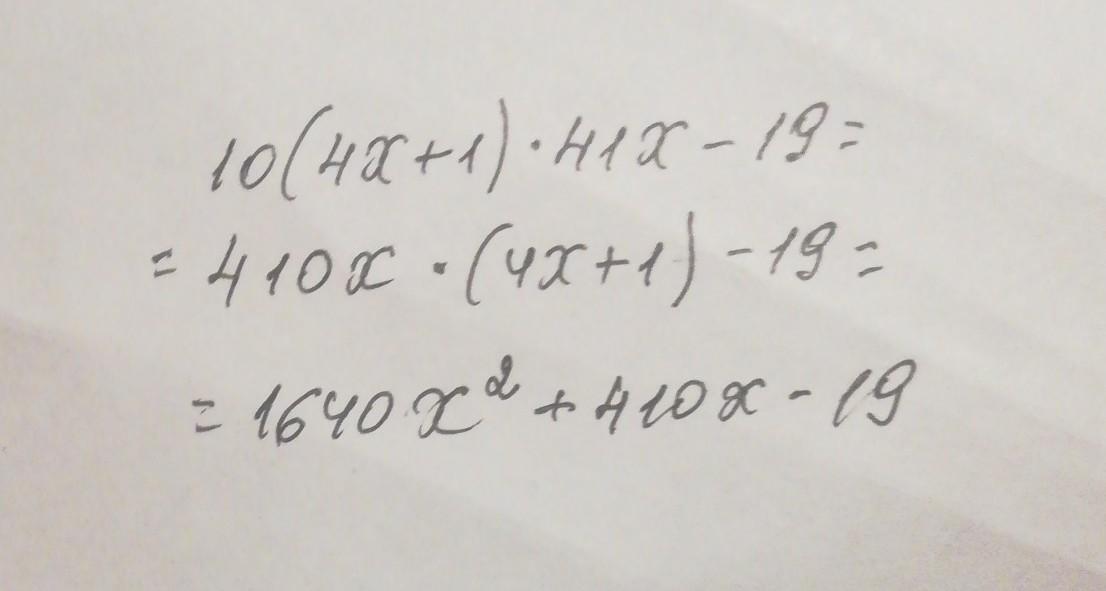 10(4x+1)·41x-19=
=410x·(4x+1)-19=
=1640x²+410x-19